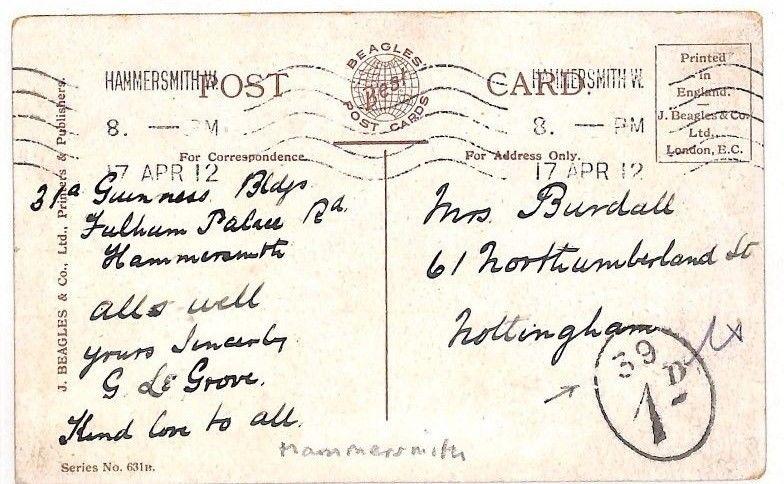 HAMMERSMITH.W.
8. — PM
17 APR 12
HAMMERSMITH W.
8. — PM
17 APR 12
POST CARD.
BEAGLES'
Best
POST CARDS
Printed
in
England.
J. Beagles & Co.
Ltd.,
London, E.C.
For Correspondence.
For Address Only.
J. BEAGLES & Co., Ltd., Printers & Publishers.
31a Guinness Bldgs
Fulham Palace Rd.
Hammersmith
alls well
yours Sincerely
G Le Grove.
Kind love to all.
Mrs. Burdall
61 Northumberland St
Nottingham
39
1D
Hammersmith
Series No. 631B.